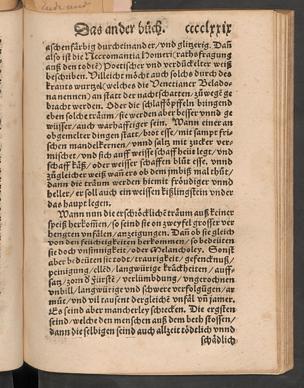 Das ander bůch. ccccLxxix
aschenfärbig durcheinander/vnd glitzerig. Dañ
also ist die Necromantia Homeri (rathsfragung
auß den todtē) Poetischer vnd verdückelter weiß
beschriben. Villeicht möcht auch solchs durch des
krauts wurtzel (welches die Venetianer Belado
na nennen) an statt der nachtschatten/zů wegē ge
bracht werden. Oder die schlafföpffeln bringend
eben solche träum/sie werden aber besser vnnd ge
wüsser/auch warhafftiger sein. Wann einer an
obgemelter dingen statt/brot esse/mit sampt fri
schen mandelkernen/vnnd saltz mit zucker ver
mischet/vnd sich auff weisse schaff heüt lege/vnd
schaff käß/oder weisser schaffen blůt esse. vnnd
zügleicher weiß wañ er ob dem imbiß mal thůt/
dann die träum werden hiemit fröudiger vnnd
heller/er soll auch ein weissen kißlingstein vnder
das haupt legen.
Wann nun die erschröckliche träum auß keiner
speiß herkoṁen/so seind sie von zwyfel grosser ver
hengten vnfälen/anzeigungen. Dañ ob sie gleich
von den feüchtigkeiten herkommen/so bedeüten
sie doch vnsinnigkeit/oder Melancholey. Sonst
aber bedeüten sie todt/traurigkeit/gefencknuß/
peinigung/ellēd/langwürige kräckheiten/auff-
satz/zorn d Fürstē/verlümbdung/vngerochnen
vnbill/langwürige vnd schwere verfolgügen/ar
můt/vnd vil tausent dergleichē vnfäl vñ jamer.
Es seind aber mancherley schrecken. Die ergsten
seind/welche den menschen auß dem beth stossen/
dann die selbigen seind auch allzeit tödtlich vnnd
schädlich